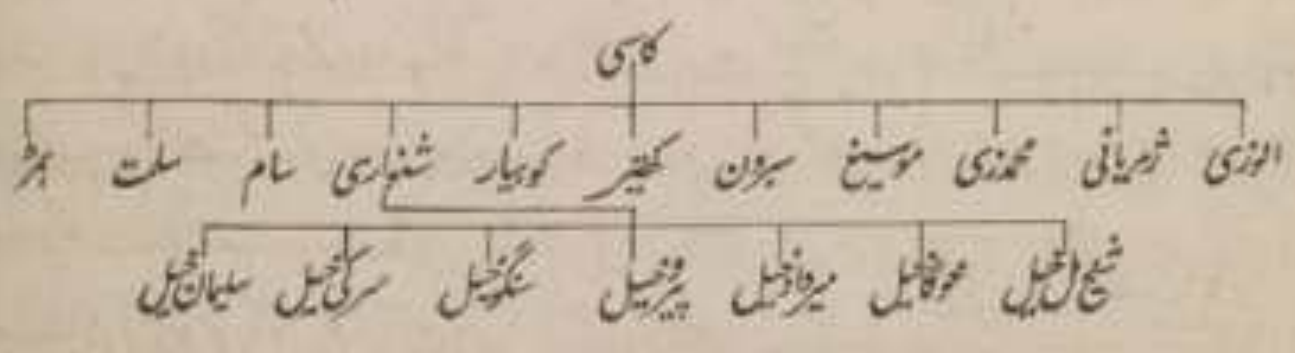 کاسی
الوزی ژمریانی محمدزی موسیغ سبزون کھتیر کوہیار شنواری سام سلت ہمڑ
شیخ مل خیل خوگاخیل میردادخیل پیروخیل سنگوخیل سرکی خیل سلیمان خیل